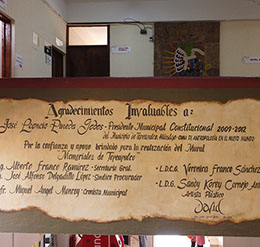 Agradecimientos Invaluables a:
José Leoncio Pineda Godos - Presidente Municipal Constitucional 2009-2012
del Municipio de Tepeapulco, Hidalgo
Por la confianza y apoyo brindado para la realización del Mural
Memoriales de Tepeapulco
Alberto Franco Ramírez - Secretario Gral.
L.D.G. Verónica Franco Sánchez
José Alfonso Delgadillo López - Síndico Procurador
L.D.G. Sandy Korey Cornejo
Miguel Angel Monroy - Cronista Municipal
Artista Plástico